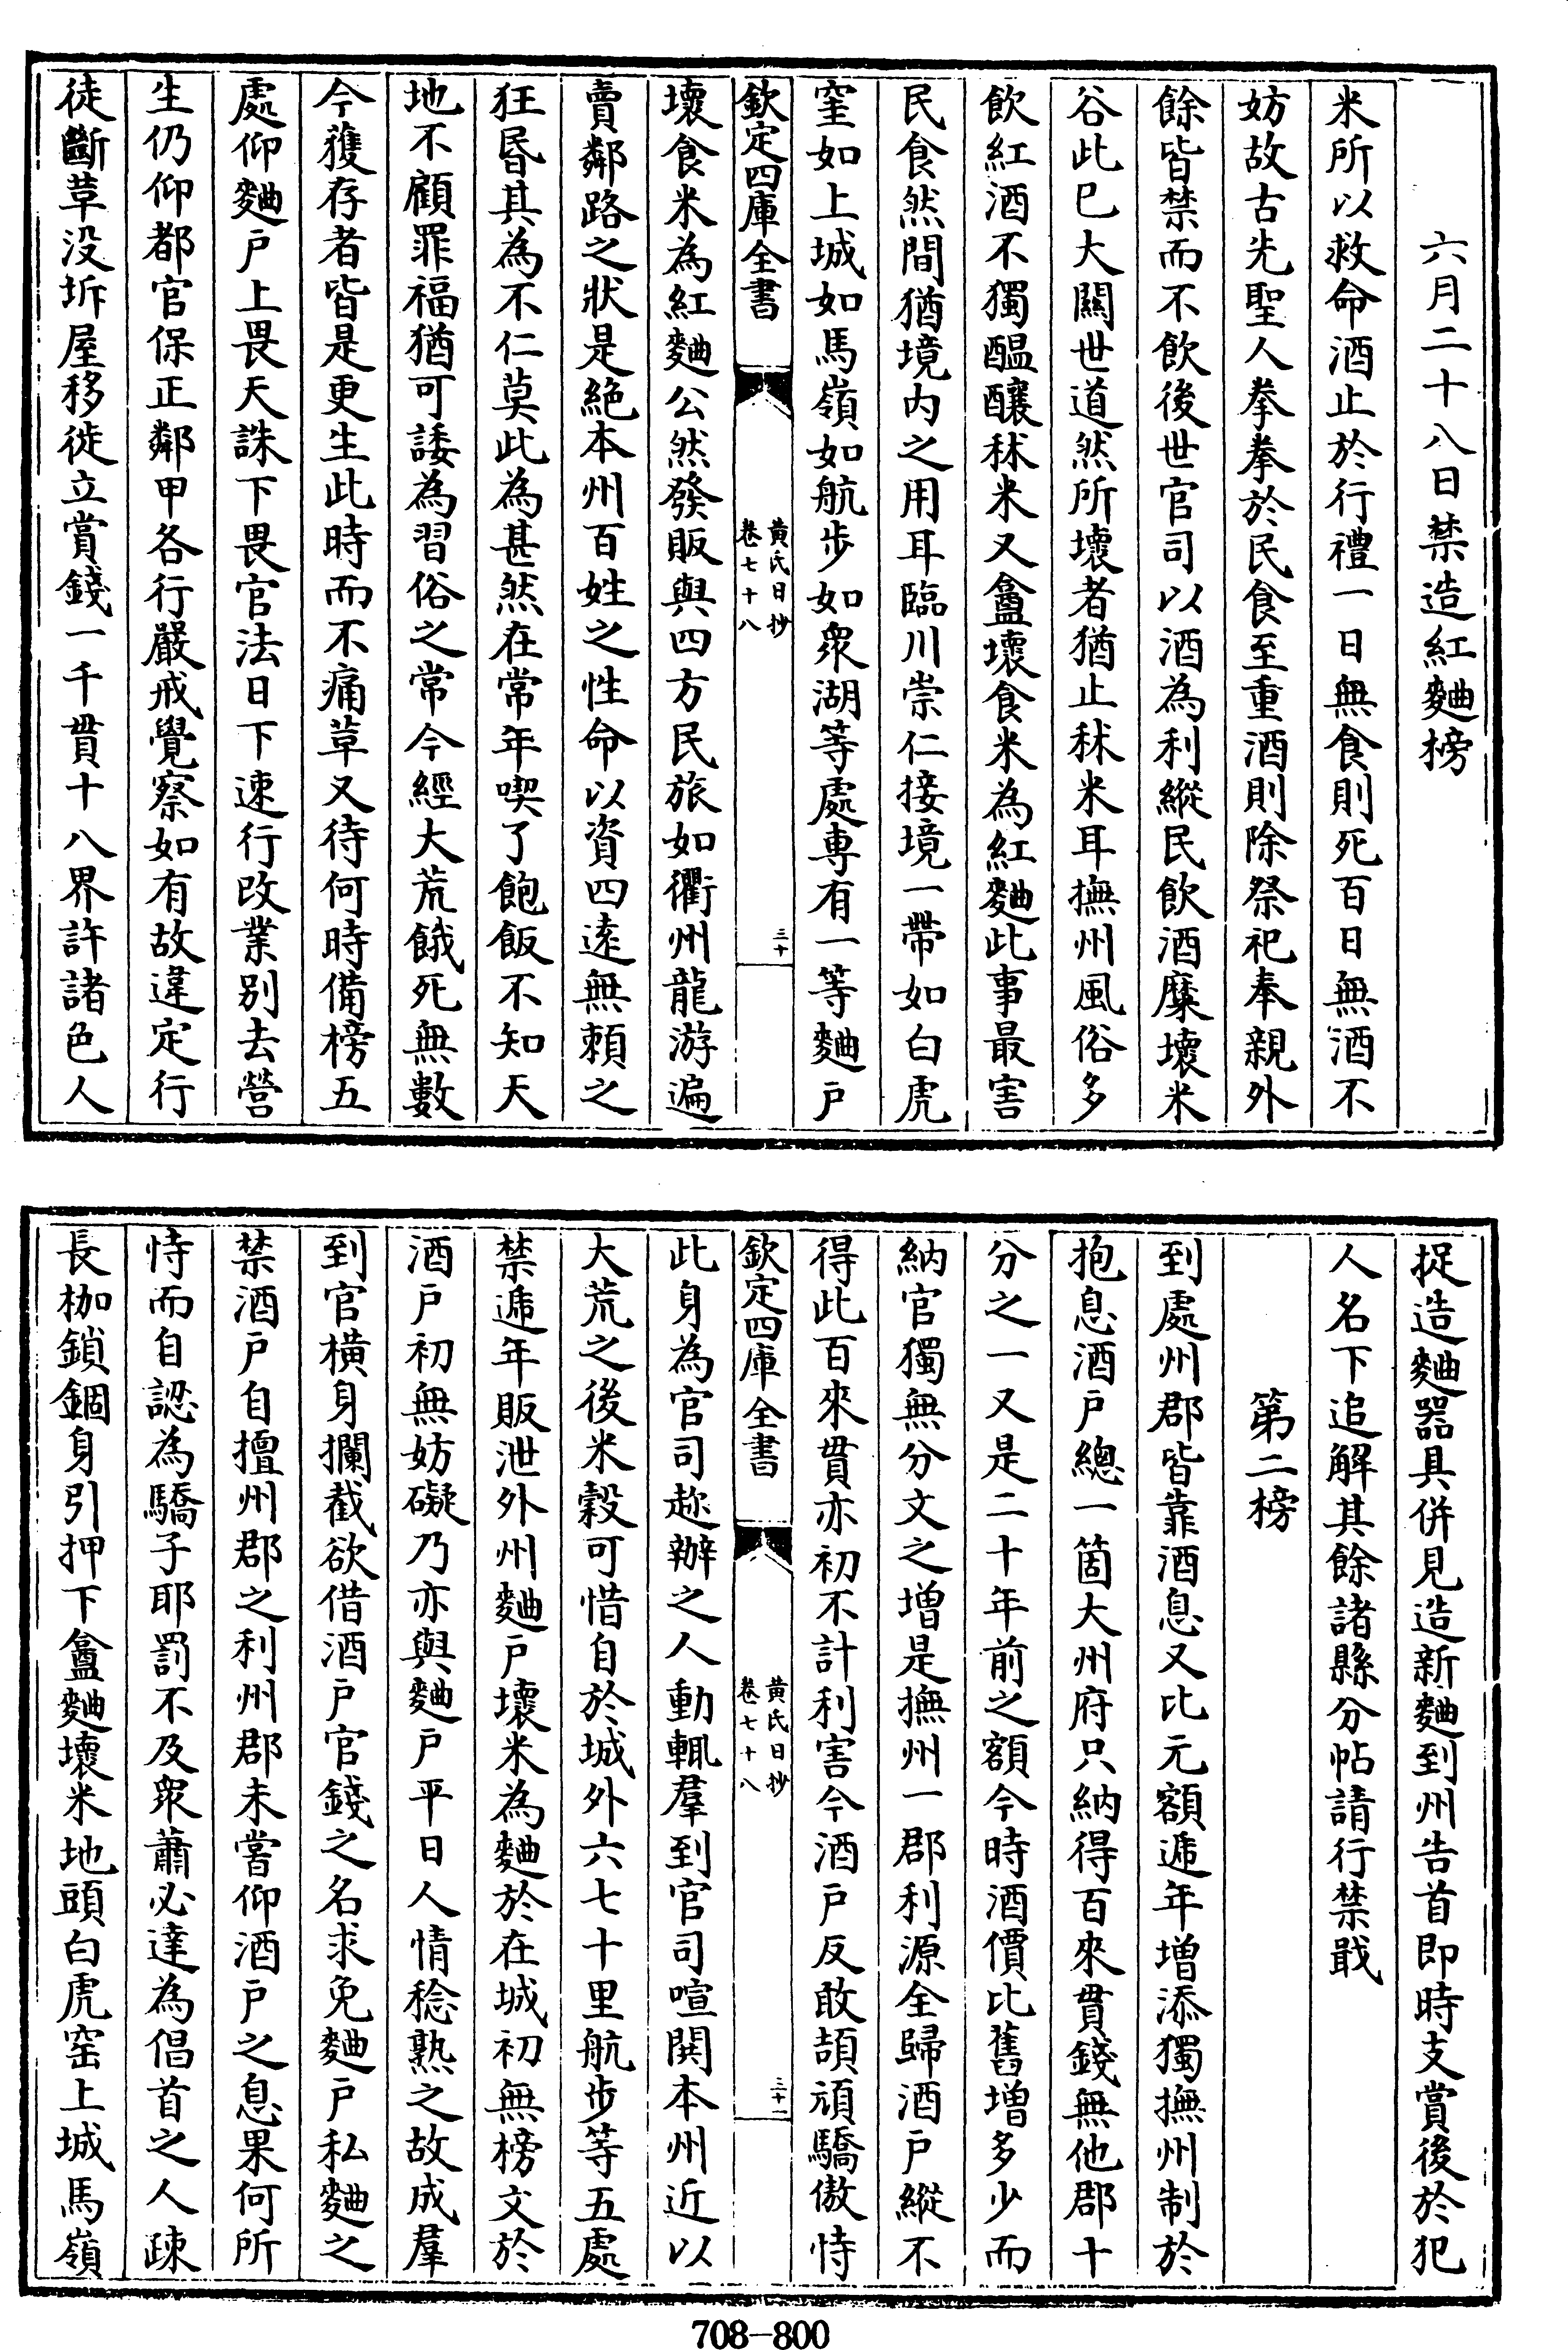 六月二十八日禁造紅麯榜
米所以救命酒止於行禮一日無食則死百日無酒不
妨故古先聖人拳拳於民食至重酒則除祭祀奉親外
餘皆禁而不飲後世官司以酒為利縱民飲酒糜壞米
谷此已大關世道然所壞者猶止秫米耳撫州風俗多
飲紅酒不獨醖釀秫米又盦壞食米為紅麯此事最害
民食然間猶境内之用耳臨川崇仁接境一帶如白虎
窐如上城如馬嶺如航步如衆湖等處專有一等麯户
欽定四庫全書
黄氏日抄
卷七十八
三十
壞食米為紅麯公然發販與四方民旅如衢州龍游遍
賣鄰路之狀是絶本州百姓之性命以資四逺無頼之
狂昬其為不仁莫此為甚然在常年喫了飽飯不知天
地不顧罪福猶可諉為習俗之常今經大荒餓死無數
今獲存者皆是更生此時而不痛草又待何時備榜五
處仰麯户上畏天誅下畏官法日下速行改業别去營
生仍仰都官保正鄰甲各行嚴戒覺察如有故違定行
徒斷草没坼屋移徙立賞錢一千貫十八界許諸色人
捉造麯器具併見造新麯到州告首即時支賞後於犯
人名下追解其餘諸縣分帖請行禁戢
第二榜
到處州郡皆靠酒息又比元額逓年增添獨撫州制於
抱息酒户總一箇大州府只納得百來貫錢無他郡十
分之一又是二十年前之額今時酒價比舊增多少而
納官獨無分文之增是撫州一郡利源全歸酒户縱不
得此百來貫亦初不計利害今酒户反敢頡頏驕傲恃
欽定四庫全書
黄氏日抄
卷七十八
三十一
此身為官司趂辦之人動輒羣到官司喧鬨本州近以
大荒之後米榖可惜自於城外六七十里航步等五處
禁逓年販泄外州麯户壞米為麯於在城初無榜文於
酒户初無妨礙乃亦與麯户平日人情稔熟之故成羣
到官橫身攔截欲借酒户官錢之名求免麯户私麯之
禁酒户自擅州郡之利州郡未嘗仰酒户之息果何所
恃而自認為驕子耶罰不及衆蕭必達為倡首之人疎
長枷鎖錮身引押下盦麯壞米地頭白虎窑上城馬嶺
708-800